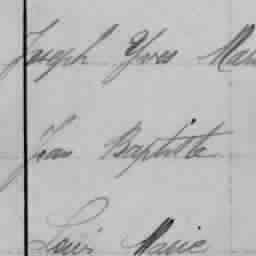 Joseph Yves Mari
Jean Baptiste
Louis Marie